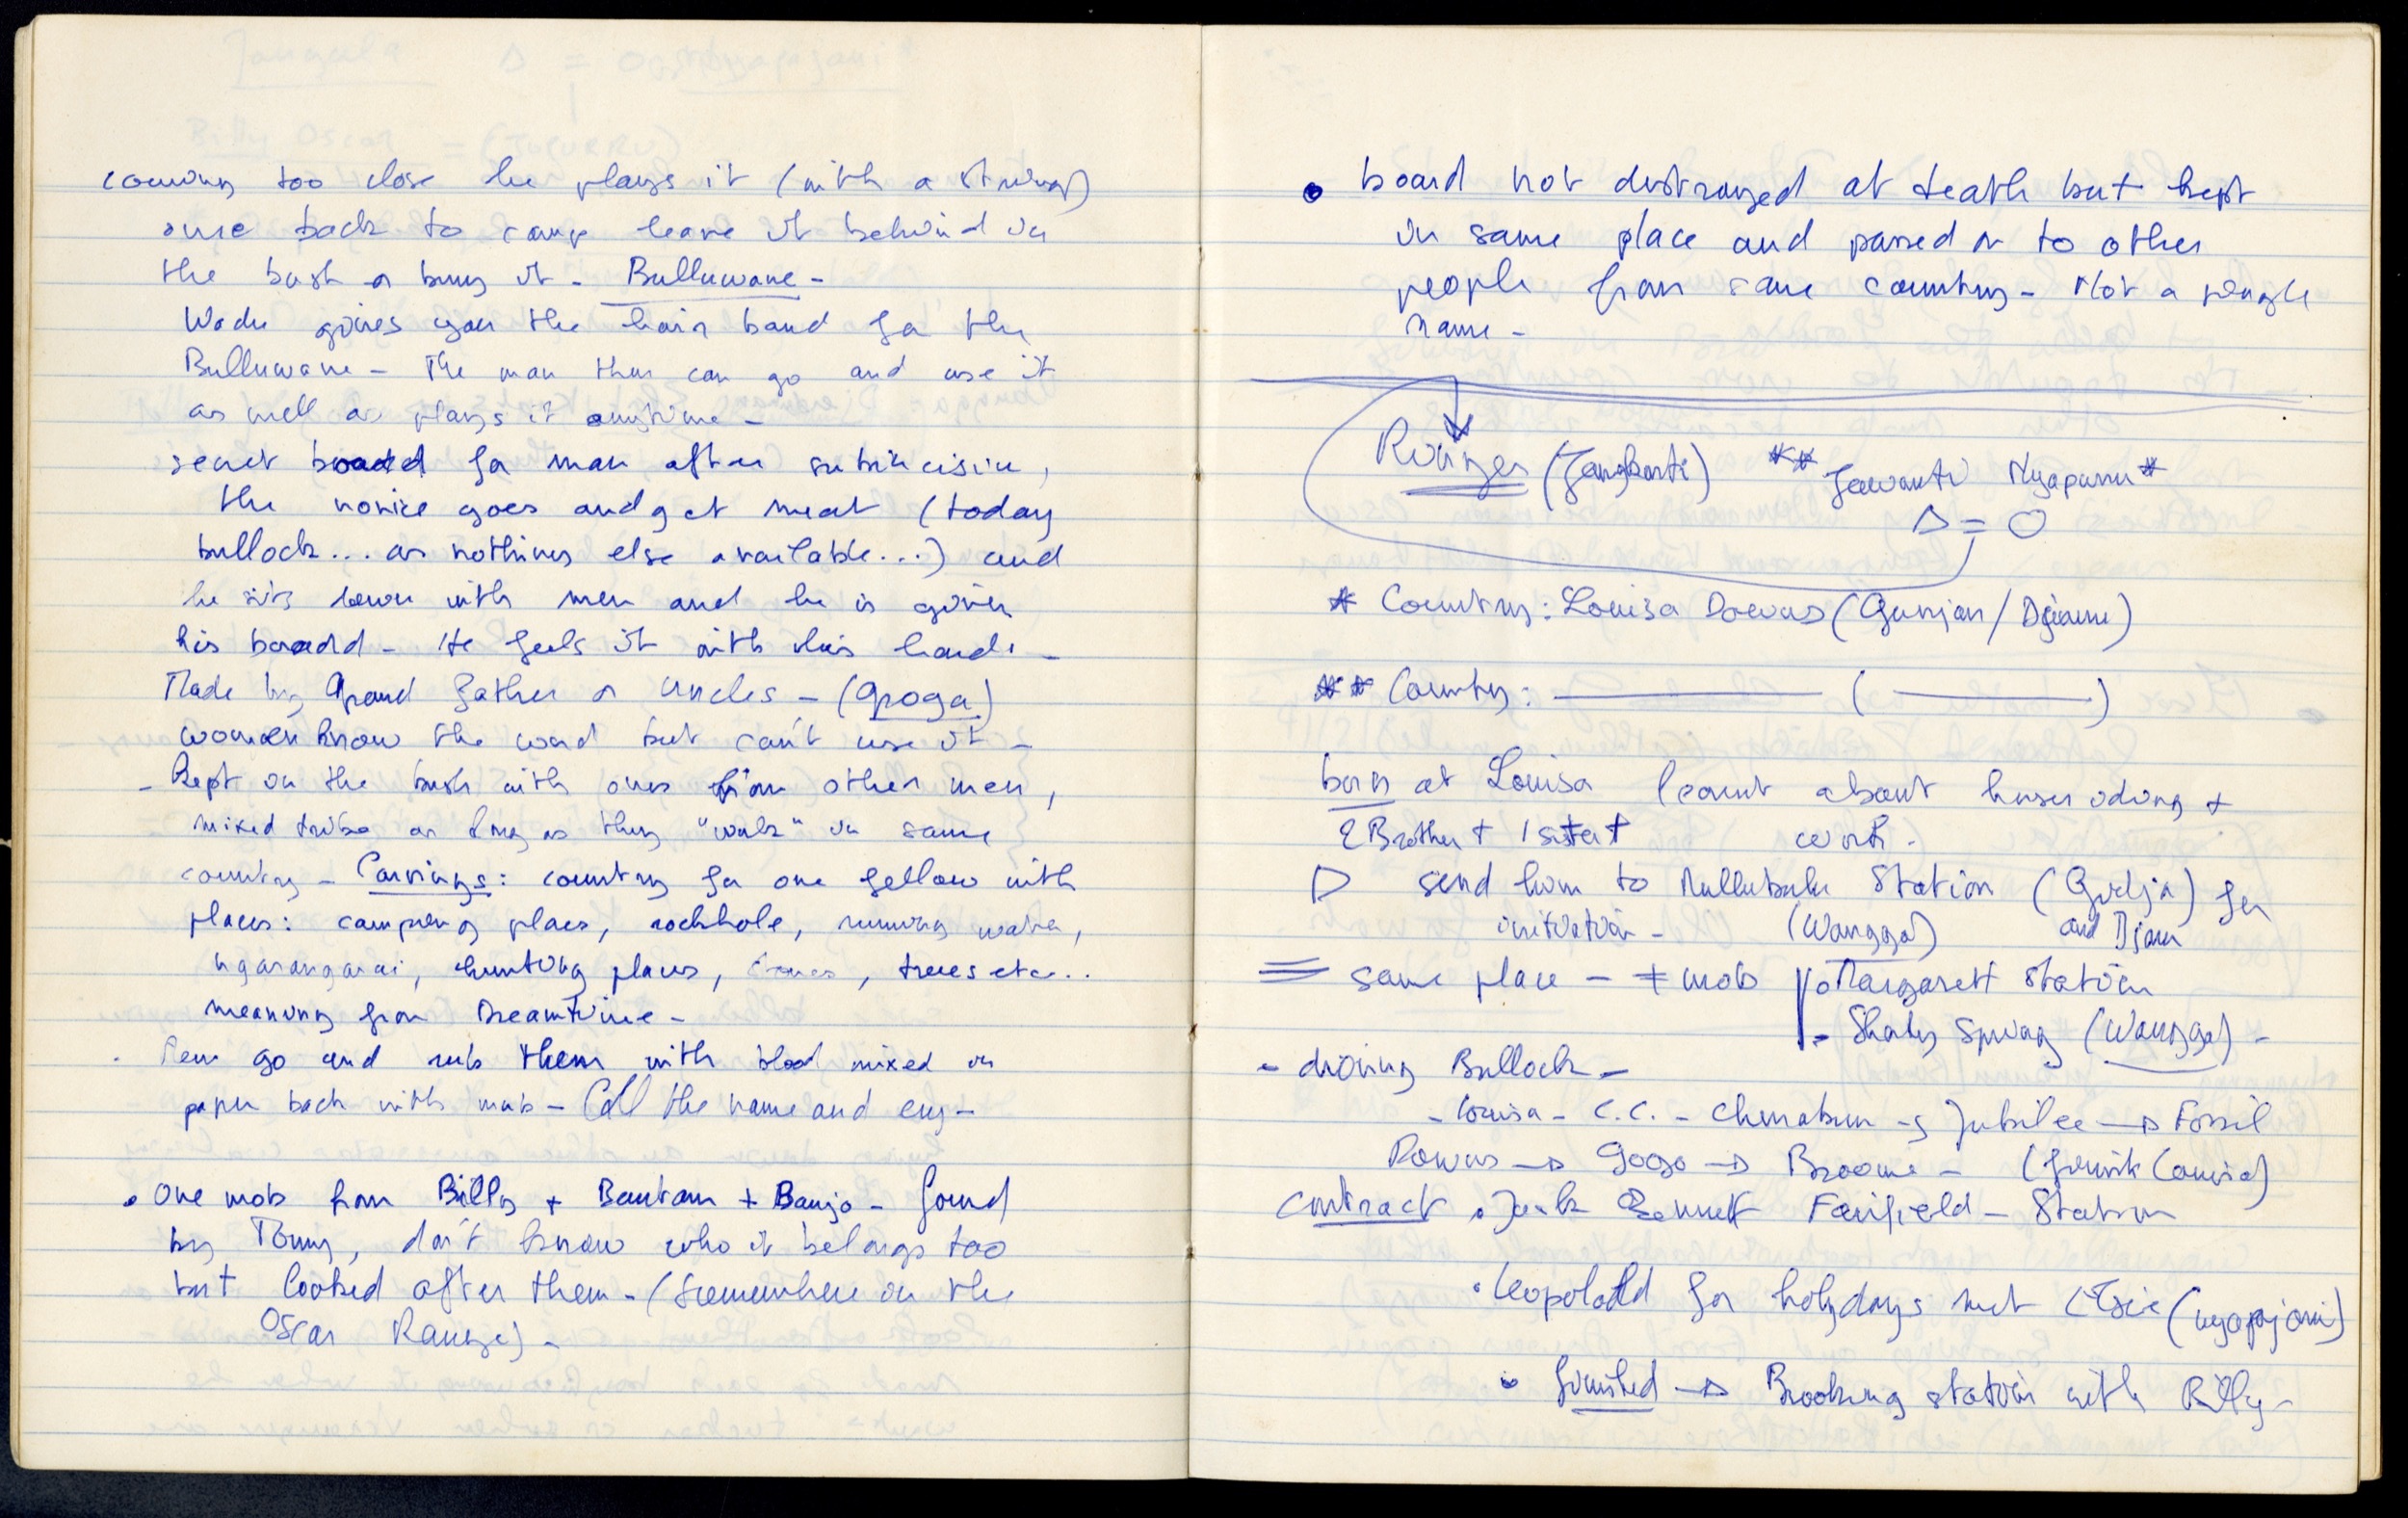 coming too close he plays it (with a string)
once back to camp leave it behind in
the bush or bury it - Bulluwane -
Wadu gives you the hair band for the
Bulluwane - The man then can go and use it
as well as plays it anytime -
secret board for man after subincision,
the novice goes and get meat (today
bullock... as nothing else available...) and
he sits down with men and he is given
his board - He feels it with his hands -
Made by Grand Father or Uncles - (Groga)
women know the word but can't use it -
- Kept in the bush with ones from other men,
mixed tribe as long as they "walk" in same
country - Carvings: country for one fellow with
places: camping places, rockhole, running water,
ngarangarai, hunting places, trees etc...
meaning from Dreamtime -
go and rub them with blood mixed in
paper bark with - Call the name and cry -
• One mob from Billy + Bantam + Banjo - found
by Tommy, don't know who it belongs too
but looked after them - (Somewhere in the
Oscar Range) -
• board not distroyed at death but kept
in same place and passed on to other
people from same country - Not a single
name -
(Jangkarti) ** Jawanti Nyapurru *
Δ = O
* Country: Louisa Downs (Gunian / Djaru)
** Country: ——— ( ——— )
born at Louisa learnt about horse riding +
2 Brother + 1 sister † work.
▷ send him to Mullubulu Station (Gidja) for
initiation - (Wangga) and Djaru
same place - ≠ mob • Margarett Station
• Shaky Spring (Wangga) -
- droving Bullock -
- Louisa - C.C. - Cherrabun → Jubilee → Fossil
Downs → Gogo → Broome - (finish Louisa)
contract • Jack Bennett Fairfield - Station
• Leopold for holydays met Elsie (nyapajarri)
• finished → Brooking station with Billy -